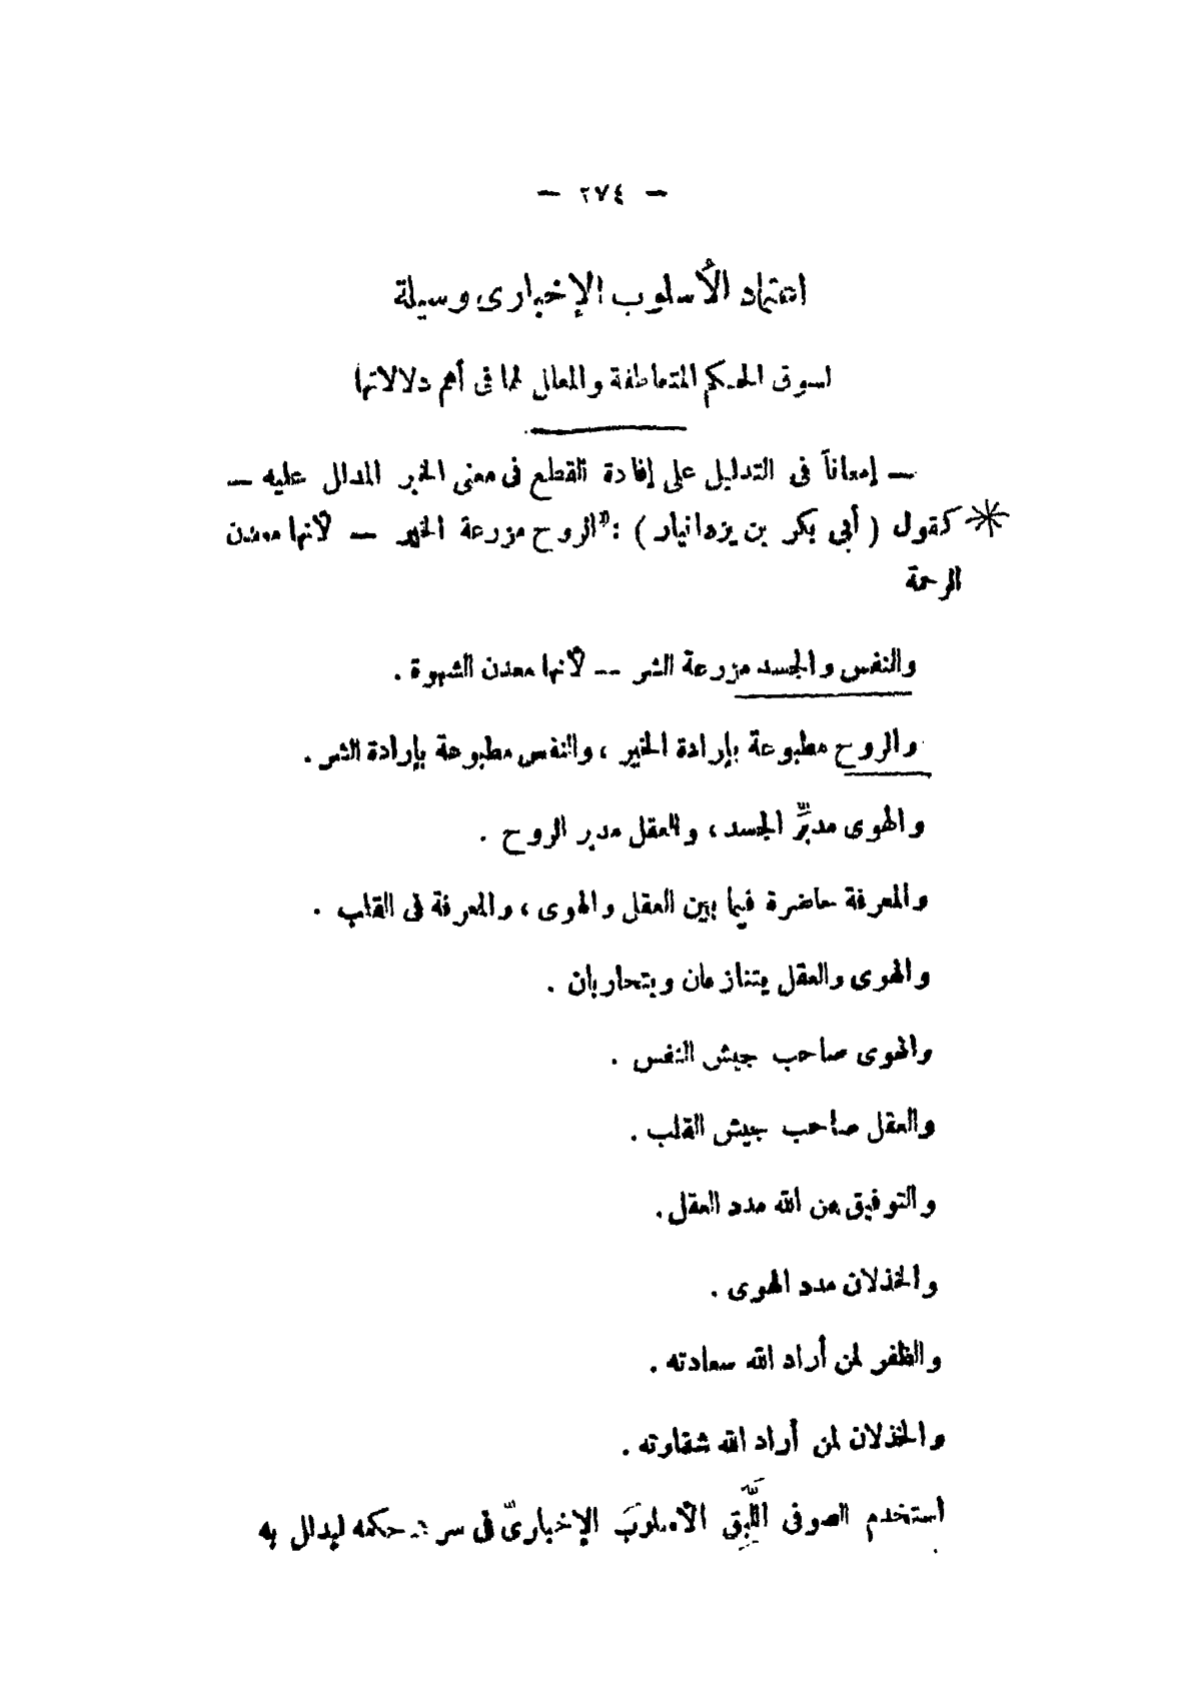 — ٢٧٤ —
اعتماد الأسلوب الإخبارى وسيلة
لسوق الحكم المتعاطفة والمعلل لما فى أهم دلالاتها
— إمعاناً فى التدليل على إفادة القطع فى معنى الخبر المدال عليه —
كقول ( أبى بكر بن يزدانيار ) : "الروح مزرعة الخير — لأنها معدن
الرحمة
والنفس والجسد مزرعة الشر — لأنها معدن الشهوة .
والروح مطبوعة بإرادة الخير ، والنفس مطبوعة بإرادة الشر .
والهوى مدبِّر الجسد ، والعقل مدبر الروح .
والمعرفة حاضرة فيما بين العقل والهوى ، والمعرفة فى القلب .
والهوى والعقل يتنازعان ويتحاربان .
والهوى صاحب جيش النفس .
والعقل صاحب جيش القلب .
والتوفيق من الله مدد العقل .
والخذلان مدد الهوى .
والظفر لمن أراد الله سعادته .
والخذلان لمن أراد الله شقاوته .
استخدم الصوفى اللَّبِق الأسلوبَ الإخبارىّ فى سرد حكمه ليدال به